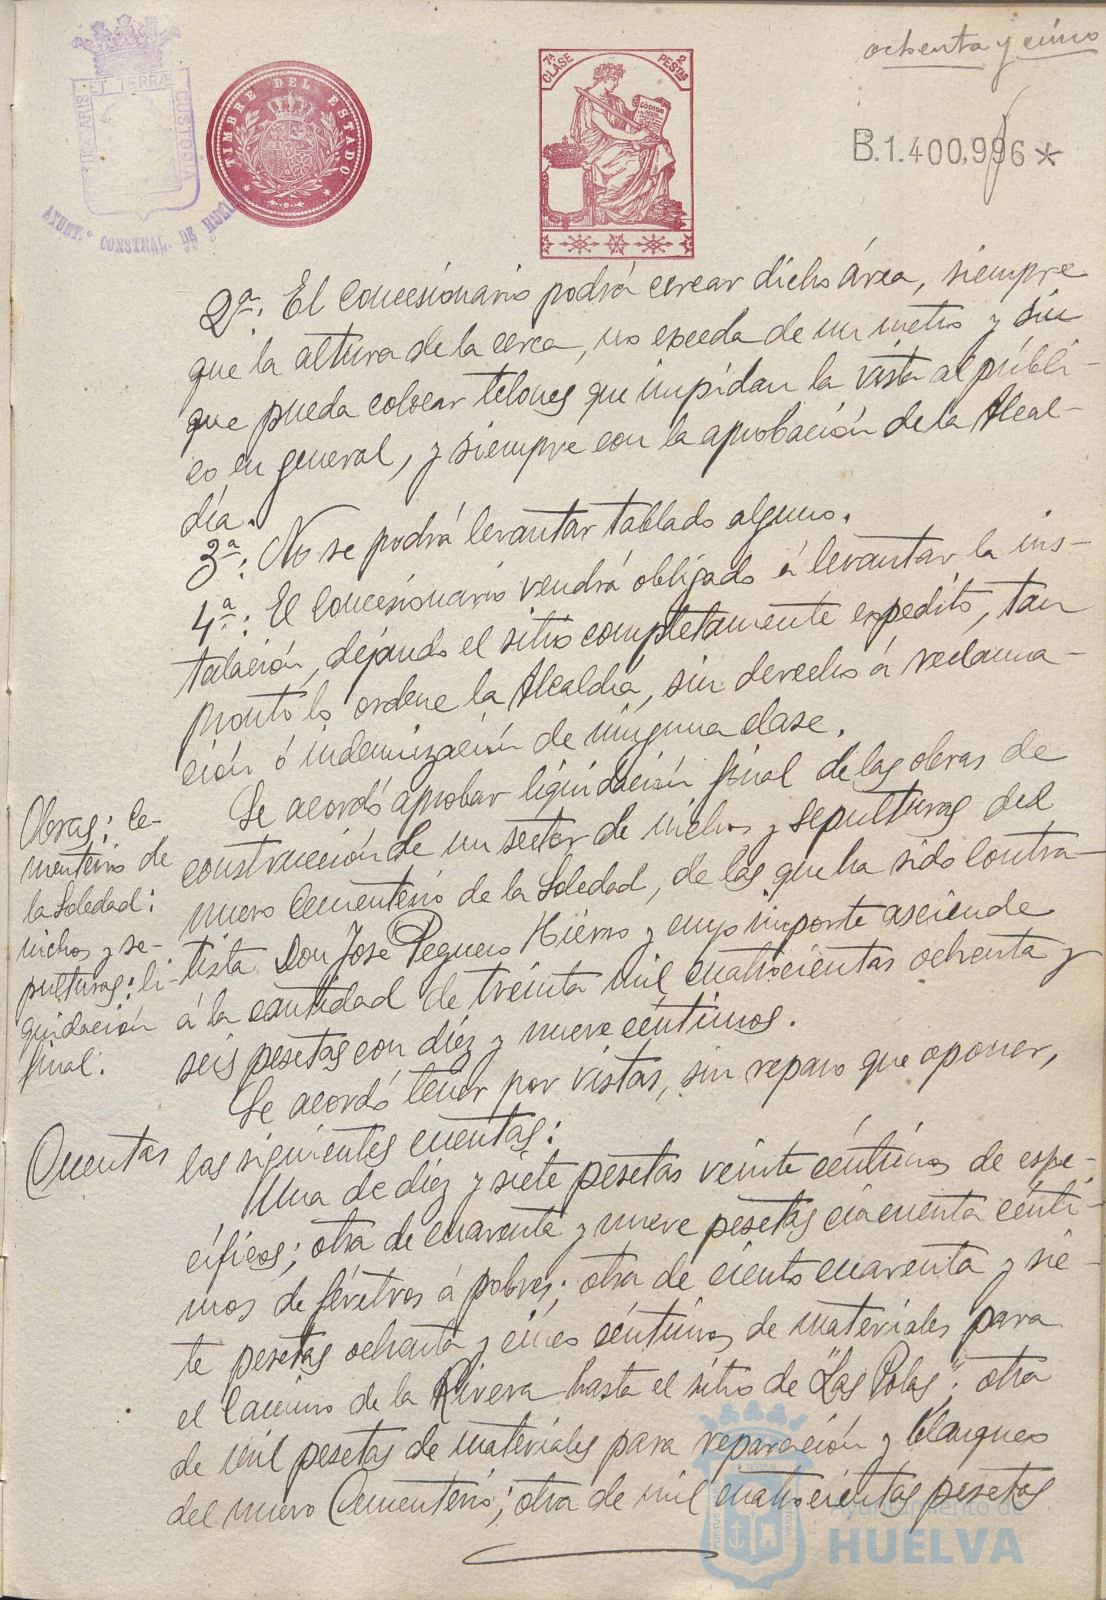 ochenta y cinco
PORTUS MARIS ET TERRÆ CUSTODIA
AYUNT.º CONSTNAL. DE HUELVA
TIMBRE DEL ESTADO
7ª CLASE
2 PESTAS
CÓDIGO
B.1.400,996*
2ª: El concesionario podrá cercar dicho área, siempre
que la altura de la cerca, no exceda de un metro y sin
que pueda colocar telones que impidan la vista al públi-
co en general, y siempre con la aprobación de la Alcal-
día.
3ª: No se podrá levantar tablado alguno.
4ª: El concesionario vendrá obligado á levantar la ins-
talación, dejando el sitio completamente expedito, tan
pronto lo ordene la Alcaldía, sin derecho á reclama-
ción ó indemnización de ninguna clase.
Obras: Ce-
menterio de
la Soledad:
nichos y se-
pulturas: li-
quidación
final.
Se acordó aprobar liquidación final de las obras de
construcción de un sector de nichos y sepulturas del
nuevo Cementerio de la Soledad, de las que ha sido contra-
tista Don José Peguero Hierro y cuyo importe asciende
á la cantidad de treinta mil cuatrocientas ochenta y
seis pesetas con diez y nueve céntimos.
Cuentas
Se acordó tener por vistas, sin reparo que oponer,
las siguientes cuentas:
Una de diez y siete pesetas veinte céntimos de espe-
cíficos; otra de cuarenta y nueve pesetas cincuenta cénti-
mos de féretros á pobres; otra de ciento cuarenta y sie-
te pesetas ochenta y cinco céntimos de materiales para
el Camino de la Rivera hasta el sitio de "Las Polas"; otra
de mil pesetas de materiales para reparación y blanqueo
del nuevo Cementerio; otra de mil cuatrocientas pesetas
Ayuntamiento de
HUELVA